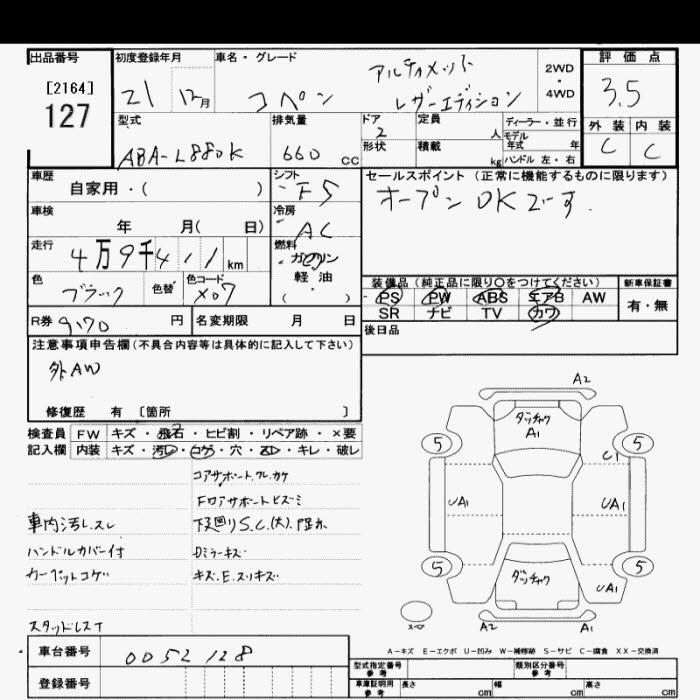 出品番号
[2164]
127
初度登録年月
21 12月
車名・グレード
コペン
アルティメット
レザーエディション
2WD
・
4WD
評価点
3.5
外装 内装
C C
型式
ABA-L880K
排気量
660 cc
ドア
2
形状
定員
人
積載
kg
ディーラー・並行
モデル
年式 年
ハンドル 左・右
車歴
自家用・( )
シフト
F5
セールスポイント (正常に機能するものに限ります)
オープンOKです.
車検
年 月( 日)
冷房
AC
走行
4万9千411km
燃料
ガソリン
軽・油
( )
色
ブラック
色替
色コード
X07
装備品 (純正品に限り○をつけてください)
PS PW ABS エアB AW
SR ナビ TV カワ
新車保証書
有・無
R券 9170 円
名変期限 月 日
後日品
注意事項申告欄(不具合内容等は具体的に記入して下さい)
外AW
修復歴 有 [箇所 ]
検査員
記入欄
FW キズ・飛石・ヒビ割・リペア跡・×要
内装 キズ・汚レ・コゲ・穴・スレ・キレ・破レ
車内汚レ.スレ
ハンドルカバー付
カーペットコゲ
スタッドレスT
下廻りS.C.(大)
Dミラーキズ
キズ.E.スリキズ
A2
ダッチャク
A1
5 5
C1
UA1 UA1
5 5
ダッチャク
UA1
スペア
A2 A1
A－キズ E－エクボ U－凹み W－補修跡 S－サビ C－腐食 XX－交換済
車台番号
0052128
登録番号
型式指定番号
参考
類別区分番号
参考
車庫証明用
参考
長さ cm
幅 cm
高さ cm